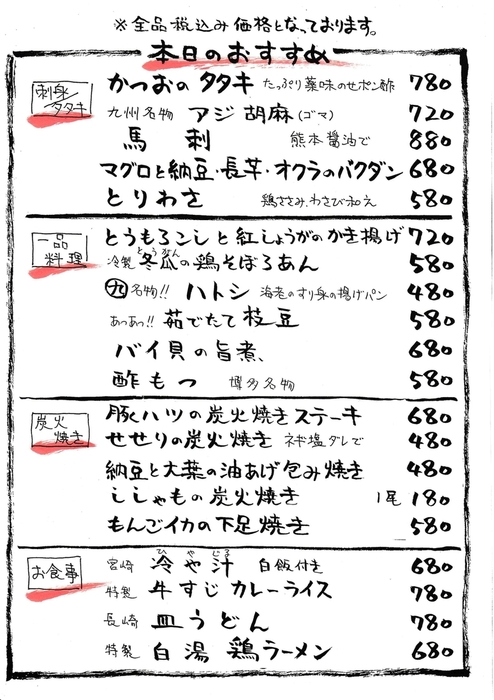 ※全品税込み価格となっております。
本日のおすすめ
刺身/タタキ
かつおのタタキ たっぷり薬味のせポン酢 780
九州名物 アジ胡麻(ゴマ) 720
馬刺 熊本醤油で 880
マグロと納豆・長芋・オクラのバクダン 680
とりわさ 鶏ささみ、わさび和え 580
一品料理
とうもろこしと紅しょうがのかき揚げ 720
冷製 冬瓜の鶏そぼろあん とうがん 580
九名物!! ハトシ 海老のすり身の揚げパン 480
あっあっ!! 茹でたて枝豆 580
バイ貝の旨煮、 680
酢もつ 博多名物 580
炭火焼き
豚ハツの炭火焼きステーキ 680
せせりの炭火焼き ネギ塩ダレで 480
納豆と大葉の油あげ包み焼き 480
ししゃもの炭火焼き 1尾 180
もんごイカの下足焼き 580
お食事
宮崎 冷や汁 ひやじる 白飯付き 680
特製 牛すじカレーライス 780
長崎 皿うどん 780
特製 白湯鶏ラーメン 680